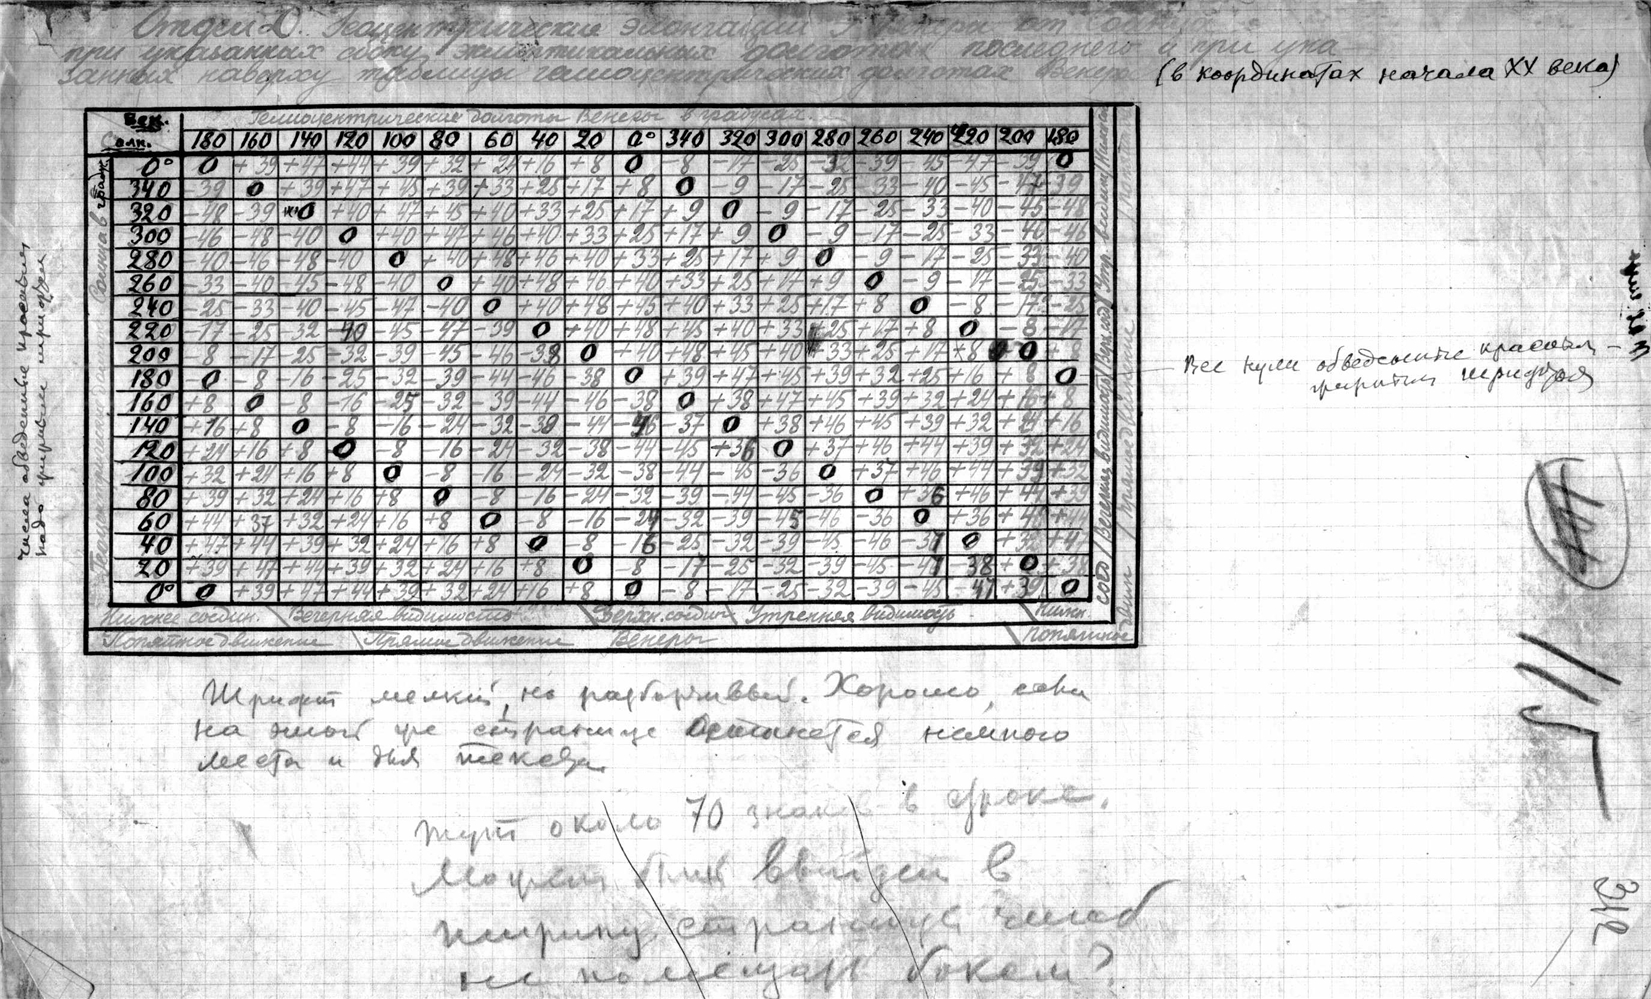 Отдел D. Геоцентрические элонгации Венеры от Солнца
при указанных сбоку эклиптикальных долготах последнего и при ука
занных наверху таблицы гелиоцентрических долготах Венеры
(в координатах начала XX века)
Вен. Гелиоцентрические долготы Венеры в градусах.
Солн. 180 160 140 120 100 80 60 40 20 0° 340 320 300 280 260 240 220 200 180
0° 0 +39 +47 +44 +39 +32 +24 +16 +8 0 -8 -17 -25 -32 -39 -45 -47 -39 0
340 -39 0 +39 +47 +45 +39 +33 +25 +17 +8 0 -9 -17 -25 -33 -40 -45 -47 -39
320 -48 -39 0 +40 +47 +45 +40 +33 +25 +17 +9 0 -9 -17 -25 -33 -40 -45 -48
300 -46 -48 -40 0 +40 +47 +46 +40 +33 +25 +17 +9 0 -9 -17 -25 -33 -46 -46
280 -40 -46 -48 -40 0 +40 +48 +46 +40 +33 +25 +17 +9 0 -9 -17 -25 -33 -40
260 -33 -40 -45 -48 -40 0 +40 +48 +46 +40 +33 +25 +17 +9 0 -9 -17 -25 -33
240 -25 -33 -40 -45 -47 -40 0 +40 +48 +45 +40 +33 +25 +17 +8 0 -8 -17 -25
220 -17 -25 -32 -40 -45 -47 -39 0 +40 +48 +45 +40 +33 +25 +17 +8 0 -8 -17
200 -8 -17 -25 -32 -39 -45 -46 -38 0 +40 +48 +45 +40 +33 +25 +17 +8 0 +8
180 0 -8 -16 -25 -32 -39 -44 -46 -38 0 +39 +47 +45 +39 +32 +25 +16 +8 0
160 +8 0 -8 -16 -25 -32 -39 -44 -46 -38 0 +38 +47 +45 +39 +32 +24 +16 +8
140 +16 +8 0 -8 -16 -24 -32 -39 -44 -46 -37 0 +38 +46 +45 +39 +32 +24 +16
120 +24 +16 +8 0 -8 -16 -24 -32 -38 -44 -45 +36 0 +37 +46 +44 +39 +32 +24
100 +32 +24 +16 +8 0 -8 -16 -24 -32 -38 -44 -45 -36 0 +37 +46 +44 +39 +32
80 +39 +32 +24 +16 +8 0 -8 -16 -24 -32 -39 -44 -45 -36 0 +36 +46 +44 +39
60 +44 +37 +32 +24 +16 +8 0 -8 -16 -24 -32 -39 -45 -46 -36 0 +36
40 +47 +44 +39 +32 +24 +16 +8 0 -8 -16 -25 -32 -39 -45 -46 -37 0
20 +39 +47 +44 +39 +32 +24 +16 +8 0 -8 -17 -25 -32 -39 -45 -47 -38 0 +38
0° 0 +39 +47 +44 +39 +32 +24 +16 +8 0 -8 -17 -25 -32 -39 -45 -47 +39 0
Нижнее соедин. Вечерняя видимость Верхн. соедин. Утренняя видимость Нижн.
Попятное движение Прямое движение Венеры Попятное
числа обведенные красным
надо жирным шрифтом
Все нули обведенные красным –
жирным шрифтом
Шрифт мелкий, но разборчивый. Хорошо, если
на этой же странице останется немного
места и для текста
тут около 70 знаков в строке.
Может быть выйдет в
ширину страницы чтоб
не помещать боком?
312